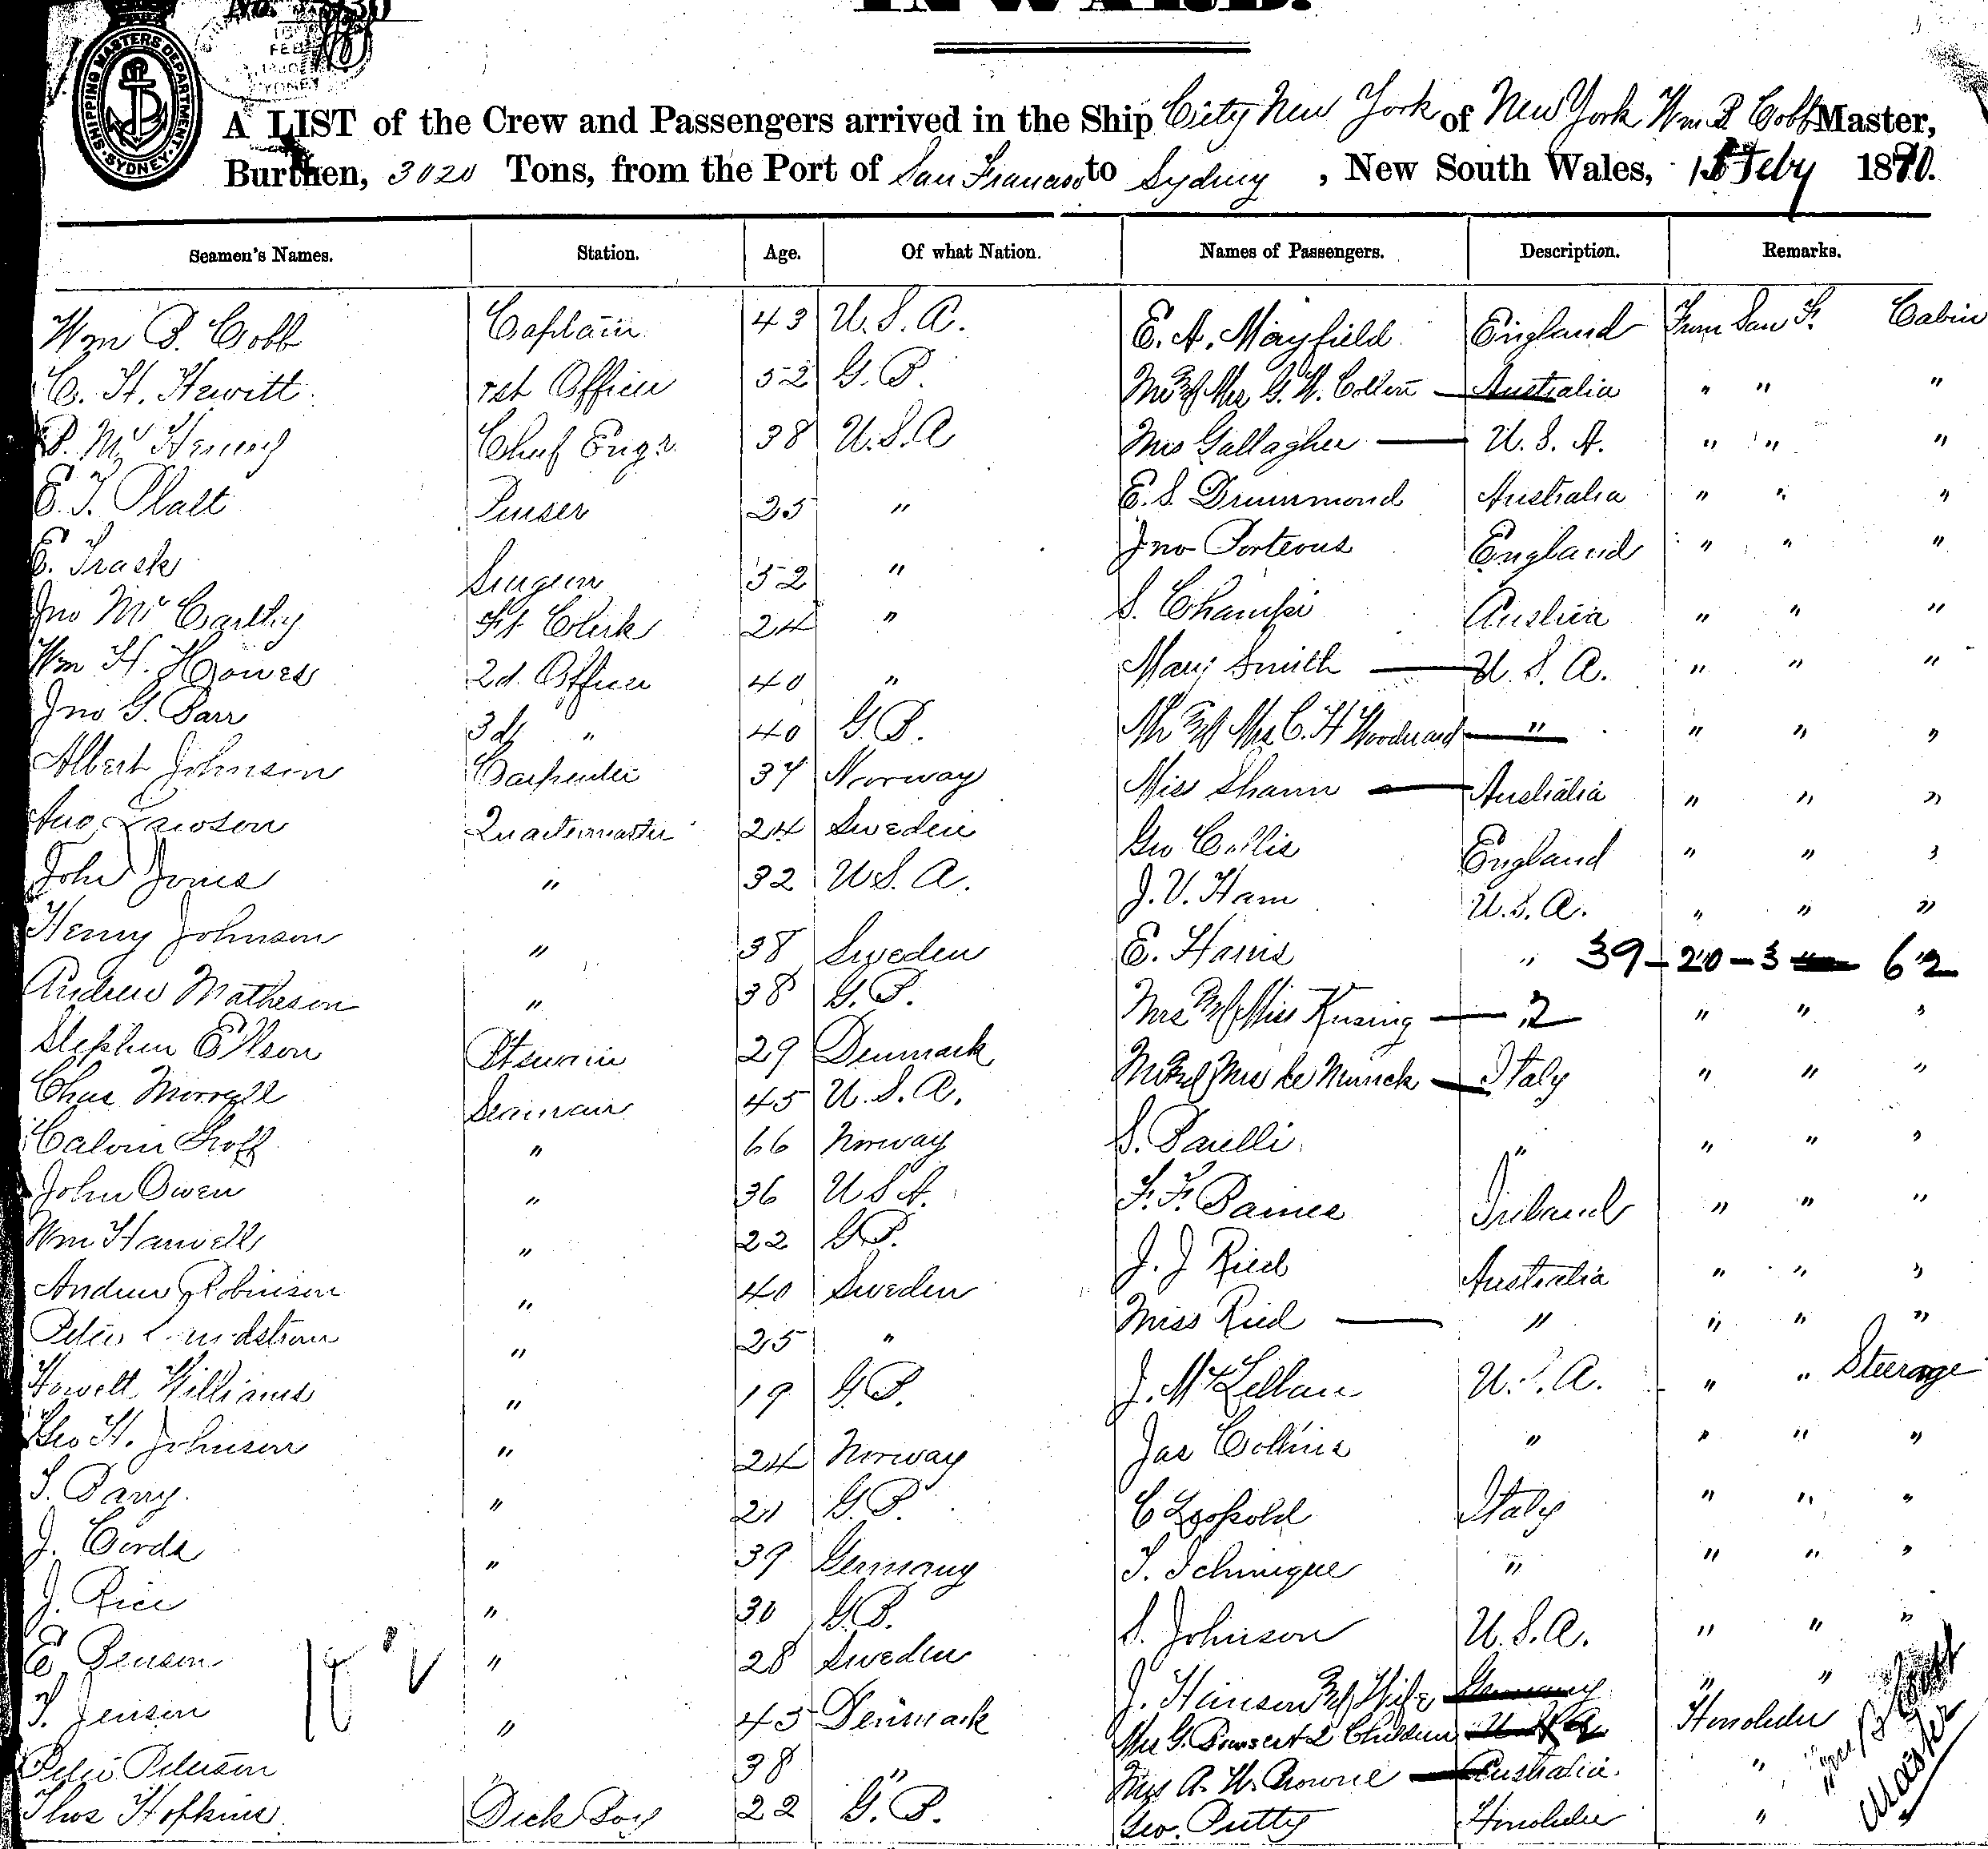 No.
INWARD.
SHIPPING MASTERS DEPARTMENT SYDNEY
FEB
SYDNEY
A LIST of the Crew and Passengers arrived in the Ship City New York of New York Wm B Cobb Master,
Burthen, 3020 Tons, from the Port of San Francisco to Sydney , New South Wales, 15 Feby 1880.
Seamen's Names. Station. Age. Of what Nation. Names of Passengers. Description. Remarks.
Wm B. Cobb Captain 43 U.S.A. E. A. Mayfield England From San F. Cabin
C. H. Hewitt 1st Officer 52 G.B. Mr & Mrs G. W. Australia " " "
Chief Engr. 38 U.S.A Mrs Gallagher U.S.A. " " "
E. T. Platt Purser 25 " E. S. Drummond Australia " " "
E. Trask Surgeon 52 " Jno Porteous England " " "
Jno McCarthy Ft Clerk 24 " S. Austria " " "
Wm H. Howes 2d. Officer 40 " Mary Smith U.S.A. " " "
Jno G. Barr 3d " 40 G.B. Mr & Mrs C. H Woodward " " " "
Albert Johnson Carpenter 37 Norway Miss Shann Australia " " "
Lawson Quartermaster 24 Sweden Geo Collis England " " "
John Jones " 32 U.S.A. J. V. Ham U.S.A. " " "
Henry Johnson " 38 Sweden E. Harris " 39 - 20 - 3 - 62
Andrew Matheson " 38 G.B. Mrs & Miss 2 " " "
Stephen Ellson Btswain 29 Denmark Mr & Mrs de Munck Italy " " "
Chas Morrell Seaman 45 U.S.A. S. Barelli " " " "
Calvin " 66 Norway F. F. Baines Ireland " " "
John Owen " 36 U S A. J. J Ried Australia " " "
Wm Harwell " 22 G.B. Miss Ried " " " "
Andrew Robinson " 40 Sweden J. McLellan U.S.A. " " Steerage
Peter Lindstrom " 25 " Jas Collins " " " "
Howell Williams " 19 G.B. C Leopold Italy " " "
Geo H. Johnson " 24 Norway T. " " " "
T. Barry. " 21 G.B. S. Johnson U.S.A. " " "
J. " 39 Germany J. Hanson & Wife Germany " "
J. Rice " 30 G.B. Mrs G. & 2 Children U.S.A Honolulu
E Benson " 28 Sweden Mrs A. W. Browne Australia. "
T. Jensen " 43 Denmark Geo. Putty Honolulu "
Peter Peterson " 38 "
Thos Hopkins Deck Boy 22 G.B.
Wm B Cobb
Master